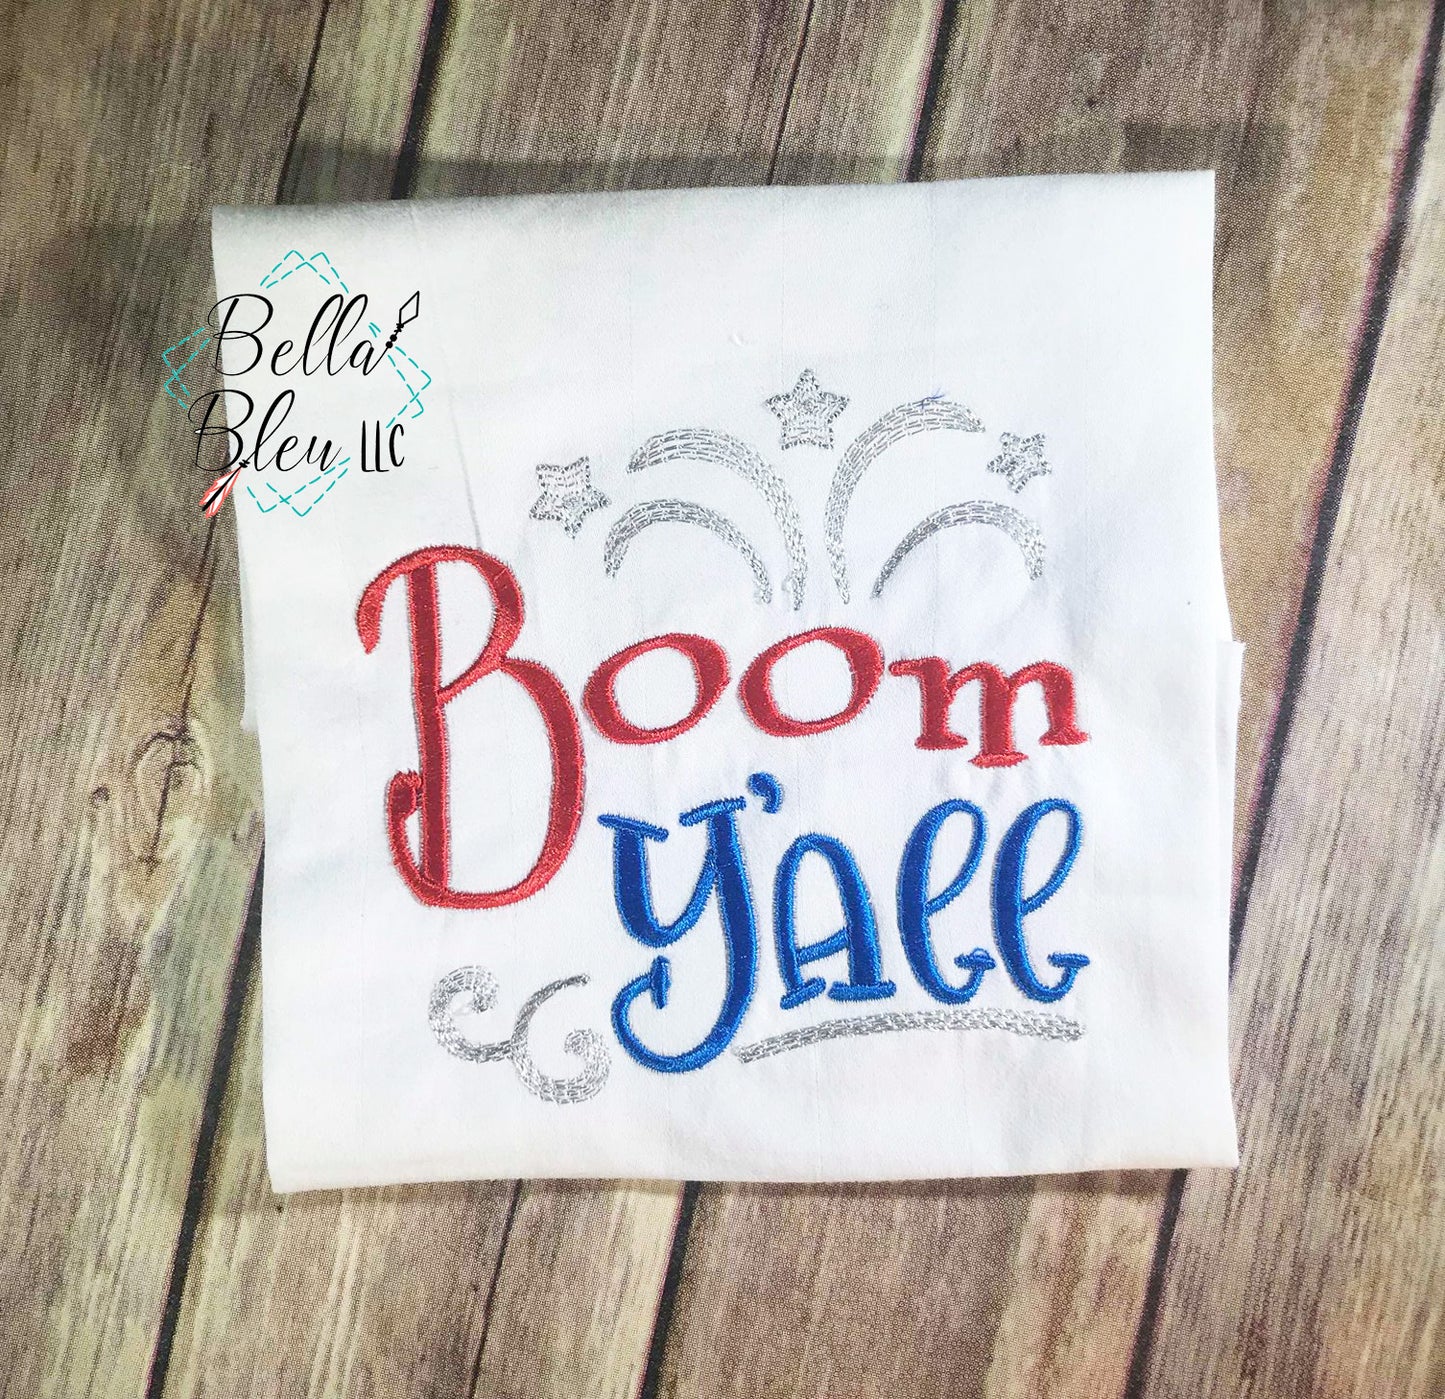 Bella
Bleu LLC
Boom
Y'all